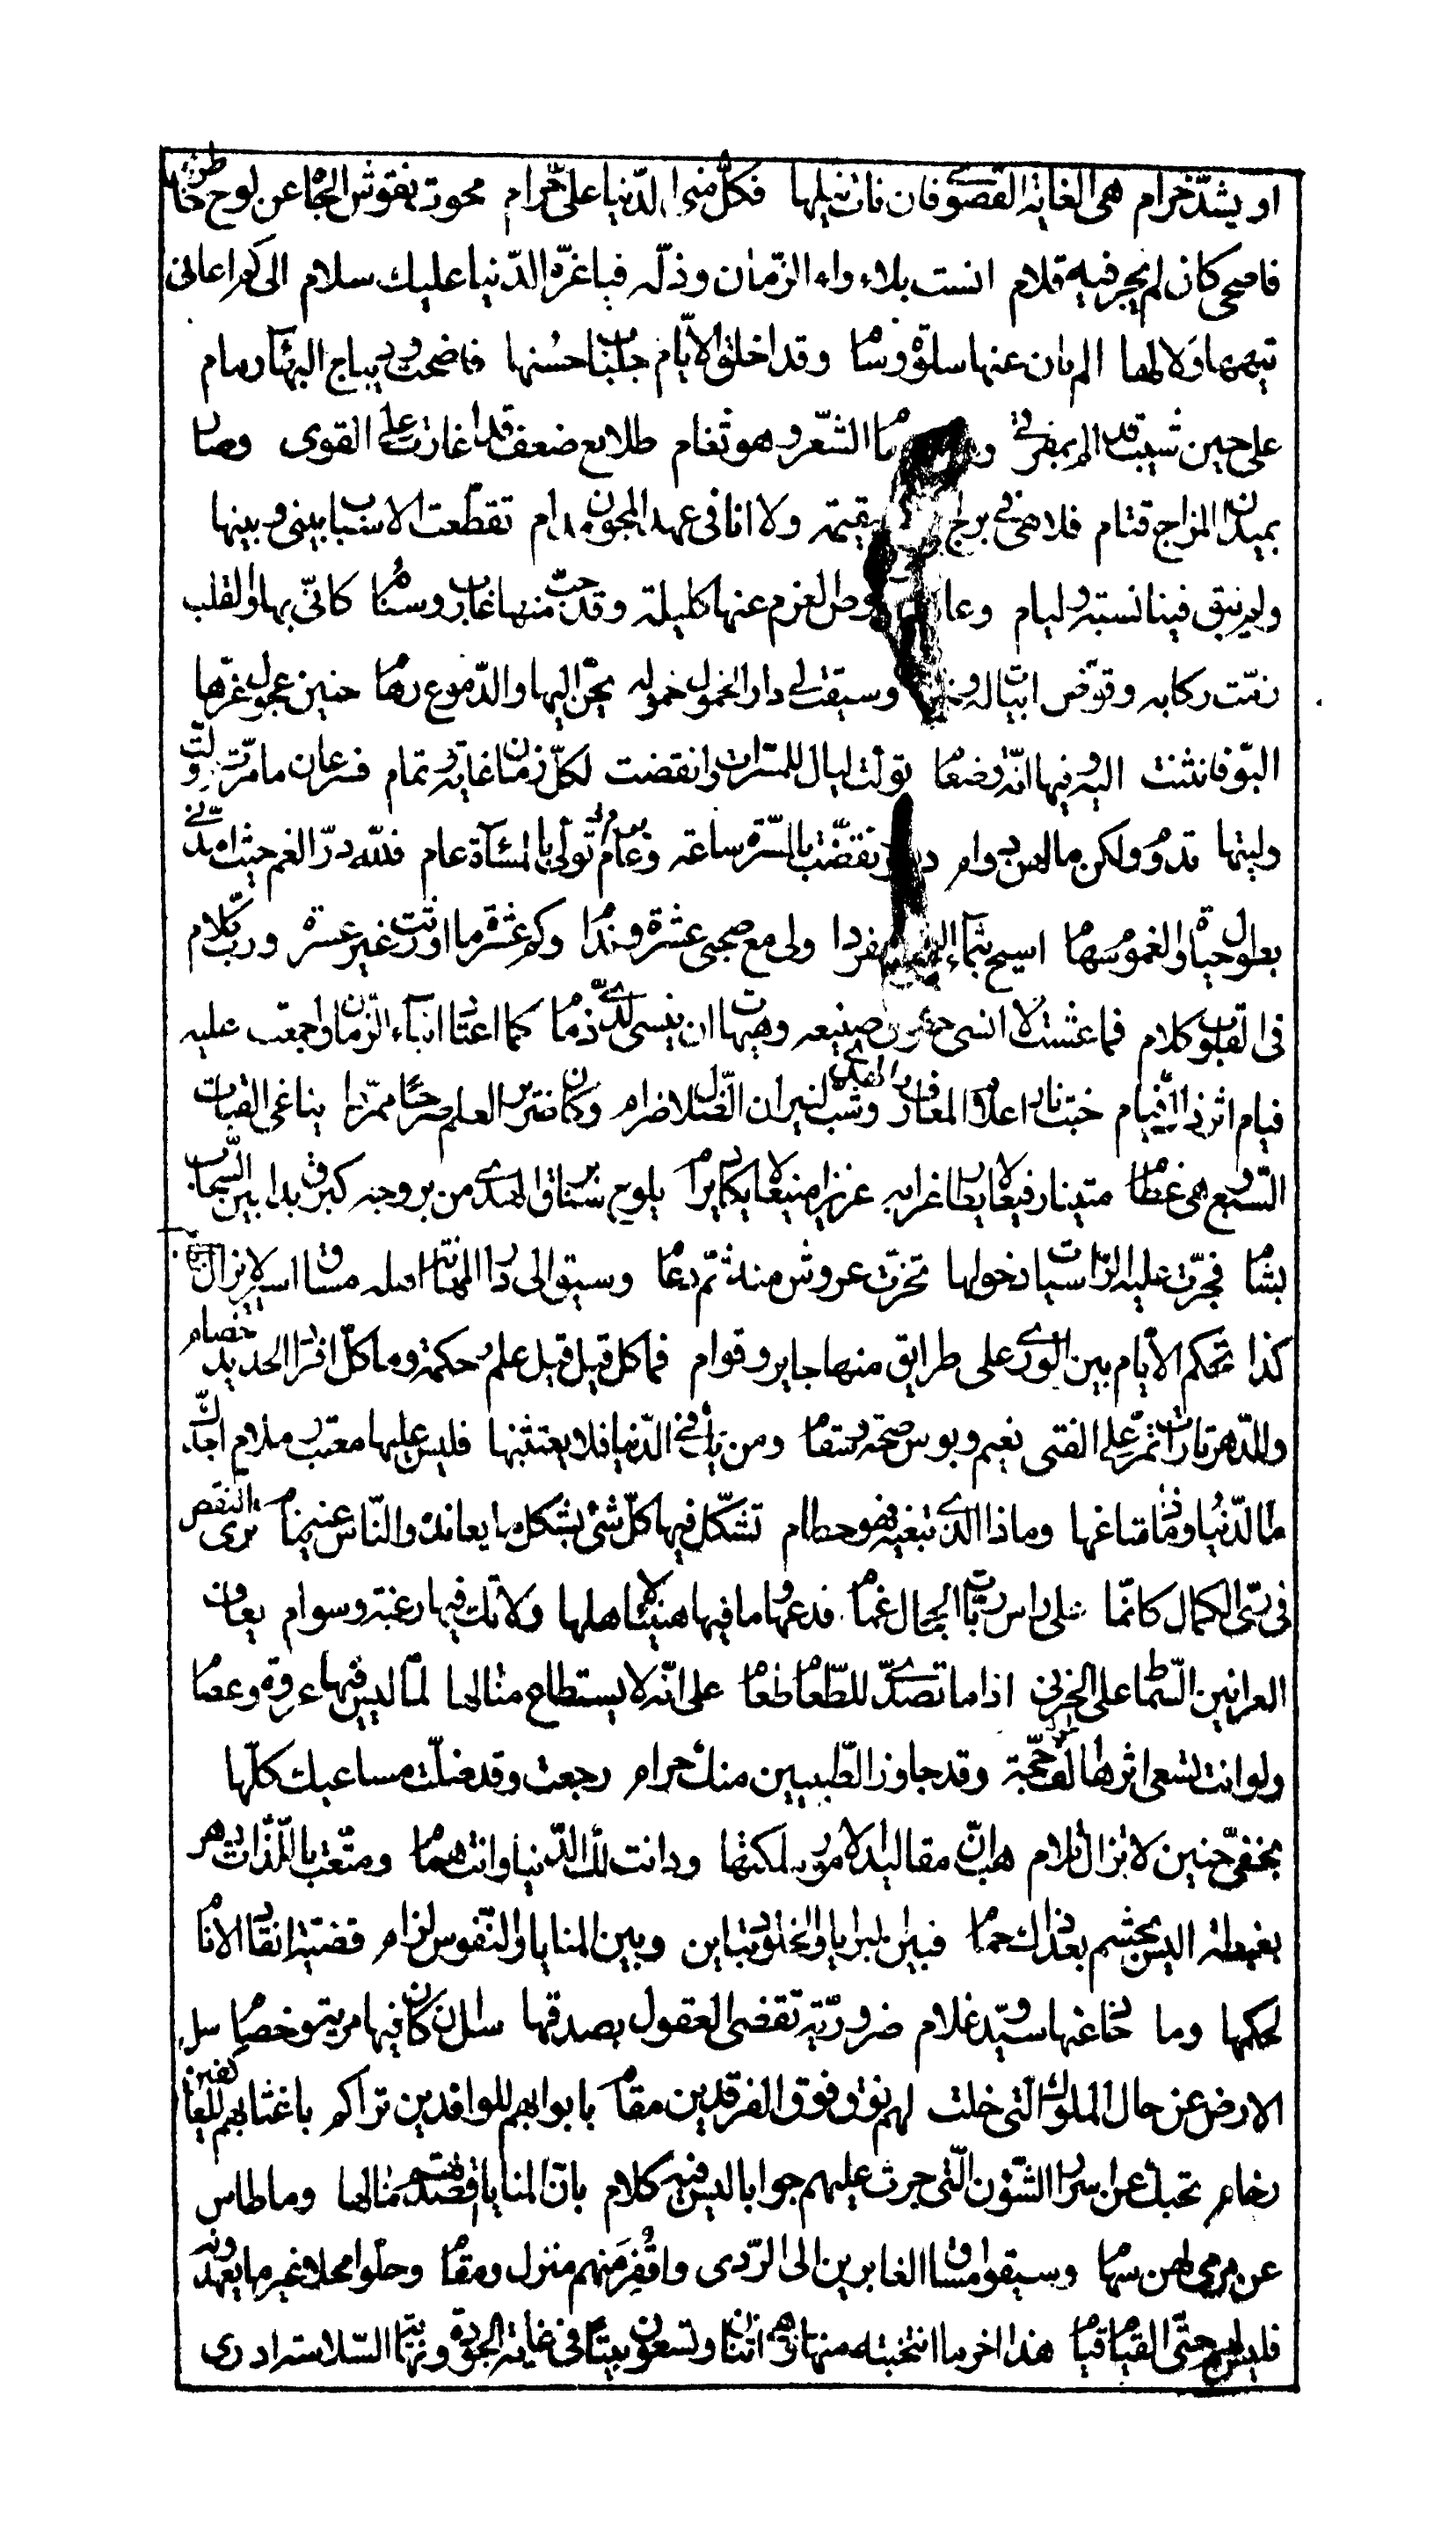 او يشدّ خرام هى الغاية القصوى فان فات نيلها فكلّ منى الدّنيا علىّ حرام محوت نقوش الجاه عن لوح خاطرى
فاضحى كان لم يجر فيه قلام انست بلاواء الزّمان وذلّه فيا غرّة الدّنيا عليك سلام الى كم اعانى
تيهها ودلالها الم يان عنها سلوة وسام وقد اخلق الايّام جلباب حسنها فاضحت وديباج البهاء رمام
على حين شيب قد الم بمفرقى و ما الشّعر وهو ثغام طلايع ضعف قد اغارت على القوى وصار
بميدان المزاج قتام فلا هى فى برج مقيمة ولا انا فى عهد المجون مدام تقطّعت الاسباب بينى وبينها
ولم يبق فينا نسبة وليام وعا العزم عنها كليلة وقد جبّ منها غارب وسنام كانّى بها والقلب
زمّت ركابه وقوّض ابيات له و وسيقت الى دار الخمول حموله يحنّ اليها والدّموع رهام حنين عجول غرّها
البوّ فانثنت اليه وفيها انّة وضغام تولّت ليال للمسّرات وانقضت لكلّ زمان غاية وتمام فسرعان ما مرّت وولّت
وليتها تدوم ولكن ما لهن دوام د تقضّت بالمسّرة ساعة وعام تولّى بالمسآة عام فللّه درّ الغم حيث امدّنى
بطول حياة والغموم سهام اسيح بتيماء مفردا ولى مع صحبى عشرة وندام وكم عشرة ما اورثت غير عسرة وربّ كلام
فى القلوب كلام فما عشت لا انسى حقوق صنيعه وهيهات ان ينسى لدىّ ذمام كما اعتاد ابناء الزمان واجمعت عليه
فيام اثر ذاك فيام خبت نار اعلام المعارف والهدى وشبّ لنيران الضّلال ضرام وكان سرير العلم صرحا ممرّدا يناغى القباب
السّبع وهى عظام متينا رفيعا لا يطار غرابه عزيزا منيعا لا يكاد يرام يلوح سنا برق الهدى من بروجه كبرق بدا بين السّحاب
يشام فجرّت عليه الرّاسيات ذيولها فخرّت عروش منه ثمّ دعام وسيق الى دار المهانة اهله مساق اسير لا يزال
كذا تحكم الايّام بين الورى على طرايق منها جاير وقوام فما كلّ قيل قيل علم وحكمة وما كلّ افراد الحديد
وللدّهر تارات تمرّ على الفتى نعيم وبوس صحّة وسقام ومن يك فى الدّنيا فلا يعتبنّها فليس عليها معتب وملام اجدّك
ما الدّنيا وماذا متاعها وماذا الّذى تبغيه فهو حطام تشكّل فيها كلّ شئ بشكل ما يعانده والنّاس عنه نيام ترى النّقص
فى زىّ الكمال كانّما على راس ربّات الحجال عمام فدعها وما فيها هنيئا لاهلها ولا تك فيها رغبة وسوام يعاف
العرانين السّماط على الخوى اذا ما تصدّى للطّعام طغام على انّه لا يستطاع منالها لما ليس فيها عروة وعصام
ولو انت تسعى اثرها الف حجّة وقد جاوز الطّبيين منك حزام رجعت وقد ضلّت مساعيك كلّها
بخفىّ حنين لا تزال تلام هب انّ مقاليد الامور ملكتها ودانت لك الدّنيا وانت همام ومتّعت باللّذّات دهرا
بغبطة اليس بحتم بعد ذاك حمام فبين البرايا والخلود تباين وبين المنايا والنّفوس لزام قضيّة انقاد الانام
لحكمها وما حاد عنها سيّد وغلام ضروريّة تقضى العقول بصدقها سل ان كان فيها مرية وخصام سل
الارض عن حال الملوك الّتى خلت لهم فوق فوق الفرقدين مقام بابوابهم للوافدين تراكم باعتابهم للعاكفين
زحام تجبك عن اسرار الشّؤن الّتى جرت عليهم جوابا ليس فيه كلام بانّ المنايا اقصدتهم نبالها وما طاش
عن مرمى لهن سهام وسيقوا مساق الغابرين الى الرّدى واقفر منهم منزل ومقام وحلّوا محلا غير ما يعهدونه
فليس لهم حتّى القيام قيام هذا اخر ما انتخبته منها وهى اثنان وتسعون بيتا فى غاية الجودة ونهاية السّلاسة ادرى